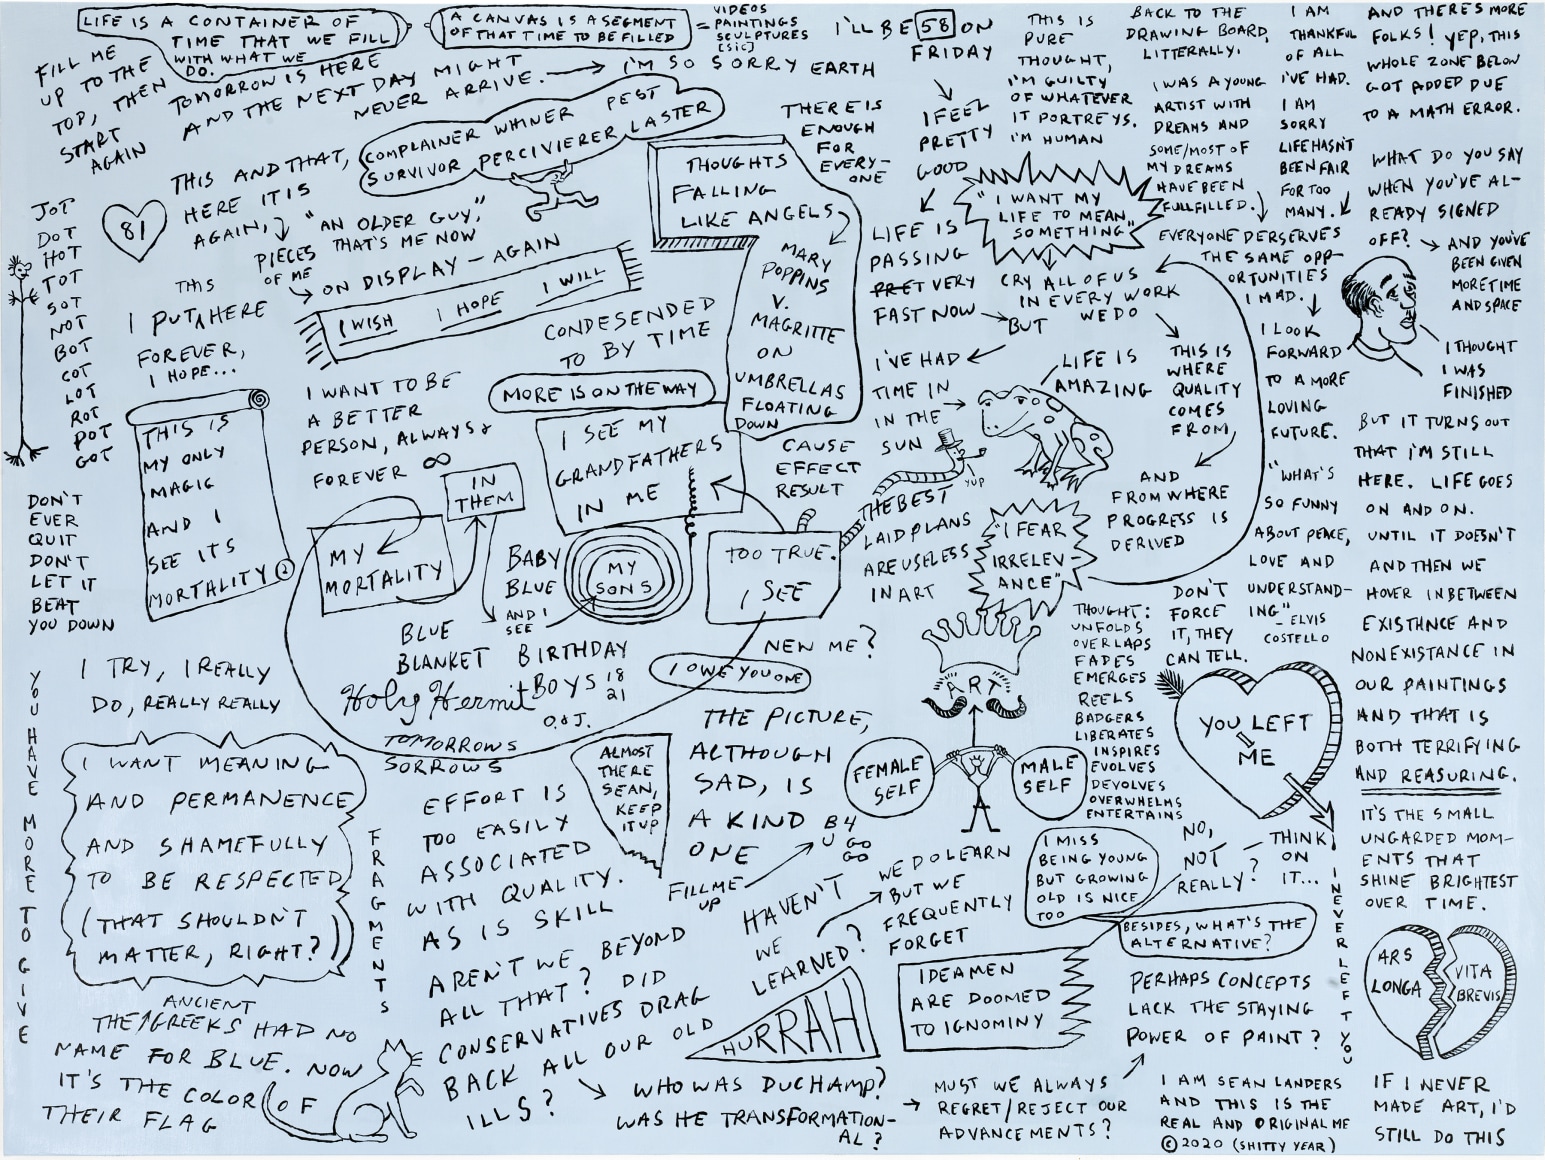 LIFE IS A CONTAINER OF
TIME THAT WE FILL
WITH WHAT WE
DO.
A CANVAS IS A SEGMENT
OF THAT TIME TO BE FILLED
= VIDEOS
PAINTINGS
SCULPTURES
[SIC]
I'LL BE 58 ON
FRIDAY
FILL ME
UP TO THE
TOP, THEN
START
AGAIN
TOMORROW IS HERE
AND THE NEXT DAY MIGHT
NEVER ARRIVE.
I'M SO SORRY EARTH
COMPLAINER WHINER PEST
SURVIVOR PERCIVIERER LASTER
THIS AND THAT,
HERE IT IS
AGAIN,
PIECES
OF ME
"AN OLDER GUY,"
THAT'S ME NOW
ON DISPLAY – AGAIN
I WISH I HOPE I WILL
81
JOT
DOT
HOT
TOT
SOT
NOT
BOT
COT
LOT
ROT
POT
GOT
THIS
I PUT HERE
FOREVER,
I HOPE...
THIS IS
MY ONLY
MAGIC
AND I
SEE ITS
MORTALITY
DON'T
EVER
QUIT
DON'T
LET IT
BEAT
YOU DOWN
I WANT TO BE
A BETTER
PERSON, ALWAYS &
FOREVER ∞
CONDESENDED
TO BY TIME
MORE IS ON THE WAY
THOUGHTS
FALLING
LIKE ANGELS
MARY
POPPINS
V.
MAGRITTE
ON
UMBRELLAS
FLOATING
DOWN
THERE IS
ENOUGH
FOR
EVERY-
ONE
I SEE MY
GRANDFATHERS
IN ME
IN
THEM
MY
MORTALITY
BABY
BLUE
AND I
SEE
MY
SONS
BLUE
BLANKET BIRTHDAY
BOYS 18
21
O. & J.
Holy Hermit
TOMORROWS
SORROWS
CAUSE
EFFECT
RESULT
TOO TRUE.
I SEE
NEW ME?
I OWE YOU ONE
I FEEL
PRETTY
GOOD
LIFE IS
PASSING
PRET VERY
FAST NOW
I'VE HAD
TIME IN
IN THE
SUN
YUP
THE BEST
LAID PLANS
ARE USELESS
IN ART
THIS IS
PURE
THOUGHT,
I'M GUILTY
OF WHATEVER
IT PORTREYS.
I'M HUMAN
"I WANT MY
LIFE TO MEAN
SOMETHING"
CRY ALL OF US
IN EVERY WORK
WE DO
BUT
LIFE IS
AMAZING
THIS IS
WHERE
QUALITY
COMES
FROM,
AND
FROM WHERE
PROGRESS IS
DERIVED
"I FEAR
IRRELEV
ANCE"
BACK TO THE
DRAWING BOARD,
LITTERALLY.
I WAS A YOUNG
ARTIST WITH
DREAMS AND
SOME/MOST OF
MY DREAMS
HAVE BEEN
FULLFILLED.
I AM
THANKFUL
OF ALL
I'VE HAD.
I AM
SORRY
LIFE HASN'T
BEEN FAIR
FOR TOO
MANY.
EVERYONE DERSERVES
THE SAME OPP-
ORTUNITIES
I HAD.
I LOOK
FORWARD
TO A MORE
LOVING
FUTURE.
"WHAT'S
SO FUNNY
ABOUT PEACE,
LOVE AND
UNDERSTAND-
ING"
– ELVIS
COSTELLO
DON'T
FORCE
IT, THEY
CAN TELL.
AND THERE'S MORE
FOLKS! YEP, THIS
WHOLE ZONE BELOW
GOT ADDED DUE
TO A MATH ERROR.
WHAT DO YOU SAY
WHEN YOU'VE AL-
READY SIGNED
OFF?
AND YOU'VE
BEEN GIVEN
MORE TIME
AND SPACE
I THOUGHT
I WAS
FINISHED
BUT IT TURNS OUT
THAT I'M STILL
HERE. LIFE GOES
ON AND ON.
UNTIL IT DOESN'T
AND THEN WE
HOVER INBETWEEN
EXISTNCE AND
NONEXISTANCE IN
OUR PAINTINGS
AND THAT IS
BOTH TERRIFYING
AND REASURING.
IT'S THE SMALL
UNGARDED MOM-
ENTS THAT
SHINE BRIGHTEST
OVER TIME.
ARS
LONGA
VITA
BREVIS
IF I NEVER
MADE ART, I'D
STILL DO THIS
I TRY, I REALLY
DO, REALLY REALLY
YOU HAVE MORE TO GIVE
I WANT MEANING
AND PERMANENCE
AND SHAMEFULLY
TO BE RESPECTED
(THAT SHOULDN'T
MATTER, RIGHT?)
FRAGMENTS
ANCIENT
THE GREEKS HAD NO
NAME FOR BLUE. NOW
IT'S THE COLOR OF
THEIR FLAG
EFFORT IS
TOO EASILY
ASSOCIATED
WITH QUALITY.
AS IS SKILL
AREN'T WE BEYOND
ALL THAT? DID
CONSERVATIVES DRAG
BACK ALL OUR OLD
ILLS?
ALMOST
THERE
SEAN,
KEEP
IT UP
THE PICTURE,
ALTHOUGH
SAD, IS
A KIND
ONE
FILL ME
UP
B4
U GO
GO
HAVEN'T
WE
LEARNED?
WE DO LEARN
BUT WE
FREQUENTLY
FORGET
HURRAH
WHO WAS DUCHAMP?
WAS HE TRANSFORMATION-
AL?
MUST WE ALWAYS
REGRET/REJECT OUR
ADVANCEMENTS?
IDEA MEN
ARE DOOMED
TO IGNOMINY
PERHAPS CONCEPTS
LACK THE STAYING
POWER OF PAINT?
ART
FEMALE
SELF
MALE
SELF
THOUGHT:
UNFOLDS
OVERLAPS
FADES
EMERGES
REELS
BADGERS
LIBERATES
INSPIRES
EVOLVES
DEVOLVES
OVERWHELMS
ENTERTAINS
YOU LEFT
ME
I MISS
BEING YOUNG
BUT GROWING
OLD IS NICE
TOO
NO,
NOT
REALLY?
THINK
ON
IT...
BESIDES, WHAT'S THE
ALTERNATIVE?
I NEVER LEFT YOU
I AM SEAN LANDERS
AND THIS IS THE
REAL AND ORIGINAL ME
© 2020 (SHITTY YEAR)